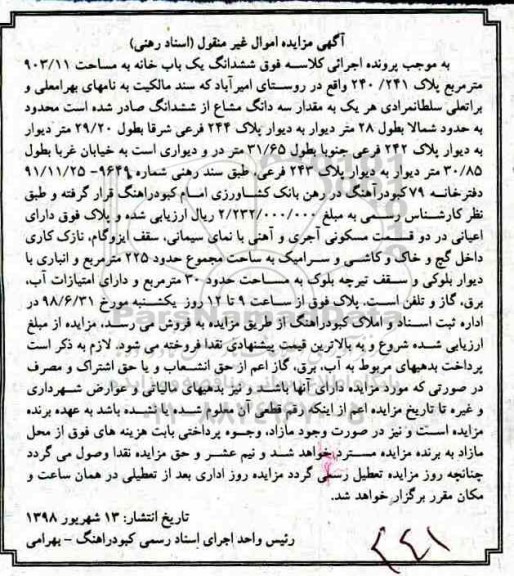 آگهی مزایده اموال غیر منقول (اسناد رهنی)
به موجب پرونده اجرائی کلاسه فوق ششدانگ یک باب خانه به مساحت ۹۰۳/۱۱
مترمربع پلاک ۲۴۱/ ۲۴۰ واقع در روستای امیرآباد که سند مالکیت به نامهای بهرامعلی و
براتعلی سلطانمرادی هر یک به مقدار سه دانگ مشاع از ششدانگ صادر شده است محدود
به حدود شمالا بطول ۲۸ متر دیوار به دیوار پلاک ۲۴۴ فرعی شرقا بطول ۲۹/۲۰ متر دیوار
به دیوار پلاک ۲۴۲ فرعی جنوبا بطول ۳۱/۶۵ متر در و دیواری است به خیابان غربا بطول
۳۰/۸۵ متر دیوار به دیوار پلاک ۲۴۳ فرعی، طبق سند رهنی شماره ۹۶۴۹- ۹۱/۱۱/۲۵
دفترخانه ۷۹ کبودرآهنگ در رهن بانک کشاورزی امام کبودراهنگ قرار گرفته و طبق
نظر کارشناس رسمی به مبلغ ۲/۲۳۲/۰۰۰/۰۰۰ ریال ارزیابی شده و پلاک فوق دارای
اعیانی در دو قسمت مسکونی آجری و آهنی با نمای سیمانی، سقف ایزوگام، نازک کاری
داخل گچ و خاک و کاشی و سرامیک به ساحت مجموع حدود ۲۲۵ مترمربع و انباری با
دیوار بلوکی و سقف تیرچه بلوک به مساحت حدود ۳۰ مترمربع و دارای امتیازات آب،
برق، گاز و تلفن است. پلاک فوق از ساعت ۹ تا ۱۲ روز یکشنبه مورخ ۹۸/۶/۳۱ در
اداره ثبت اسناد و املاک کبودراهنگ از طریق مزایده به فروش می رسد، مزایده از مبلغ
ارزیابی شده شروع و به بالاترین قیمت پیشنهادی نقدا فروخته می شود. لازم به ذکر است
پرداخت بدهیهای مربوط به آب، برق، گاز اعم از حق انشعاب و یا حق اشتراک و مصرف
در صورتی که مورد مزایده دارای آنها باشد و نیز بدهیهای مالیاتی و عوارض شهرداری
و غیره تا تاریخ مزایده اعم از اینکه رقم قطعی آن معلوم شده یا نشده باشد به عهده برنده
مزایده است و نیز در صورت وجود مازاد، وجوه پرداختی بابت هزینه های فوق از محل
مازاد به برنده مزایده مسترد خواهد شد و نیم عشر و حق مزایده نقدا وصول می گردد
چنانچه روز مزایده تعطیل رسمی گردد مزایده روز اداری بعد از تعطیلی در همان ساعت و
مکان مقرر برگزار خواهد شد.
تاریخ انتشار: ۱۳ شهریور ۱۳۹۸
رئیس واحد اجرای اسناد رسمی کبودراهنگ - بهرامی
۲۴۱
ParsNamadData